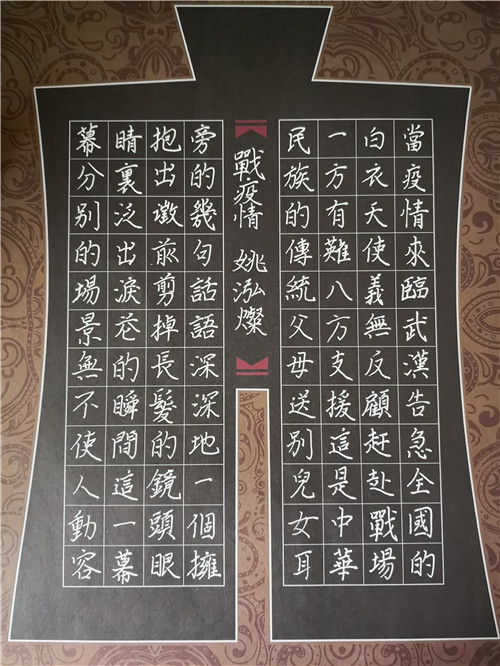 當疫情來臨武漢告急全國的
白衣天使義無反顧赶赴戰場
一方有難八方支援這是中華
民族的傳統父母送別兒女耳
戰疫情 姚泓燦
旁的幾句話語深深地一個擁
抱出徵前剪掉長髮的鏡頭眼
睛裏泛出淚花的瞬間這一幕
幕分別的場景無不使人動容